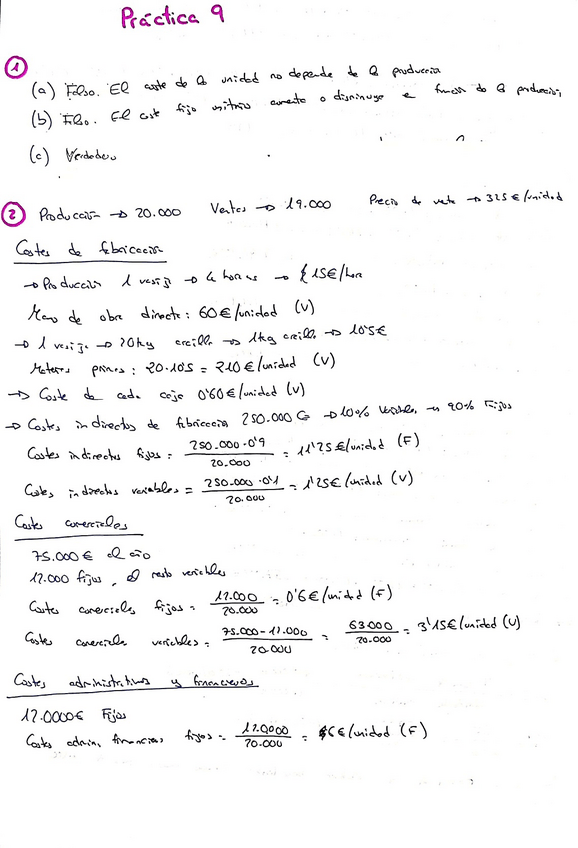 Práctica 9
1
(a) Falso. El coste de la unidad no depende de la producción
(b) Falso. El coste fijo unitario aumenta o disminuye e función de la producción,
(c) Verdadero
2 Producción → 20.000 Ventas → 19.000 Precio de venta → 325 €/unidad
Costes de fabricación
→ Producción 1 vasija → 4 horas → 15€/hora
Mano de obra directa: 60€/unidad (V)
→ 1 vasija → 20kg arcilla → 1kg arcilla → 10'5€
Materias primas: 20·10'5 = 210€/unidad (V)
→ Coste de cada caja 0'60€/unidad (V)
→ Costes indirectos de fabricación 250.000€ → 10% Variables → 90% Fijos
Costes indirectos fijos = 250.000·0'9 / 20.000 = 11'25€/unidad (F)
Costes indirectos variables = 250.000·0'1 / 20.000 = 1'25€/unidad (V)
Costes comerciales
75.000€ al año
12.000 fijos, el resto variables
Costes comerciales fijos = 12.000 / 20.000 = 0'6€/unidad (F)
Costes comerciales variables = 75.000-12.000 / 20.000 = 63.000 / 20.000 = 3'15€/unidad (V)
Costes administrativos y financieros
12.0000€ Fijos
Costes admin, financieros fijos = 12.0000 / 20.000 = 6€/unidad (F)